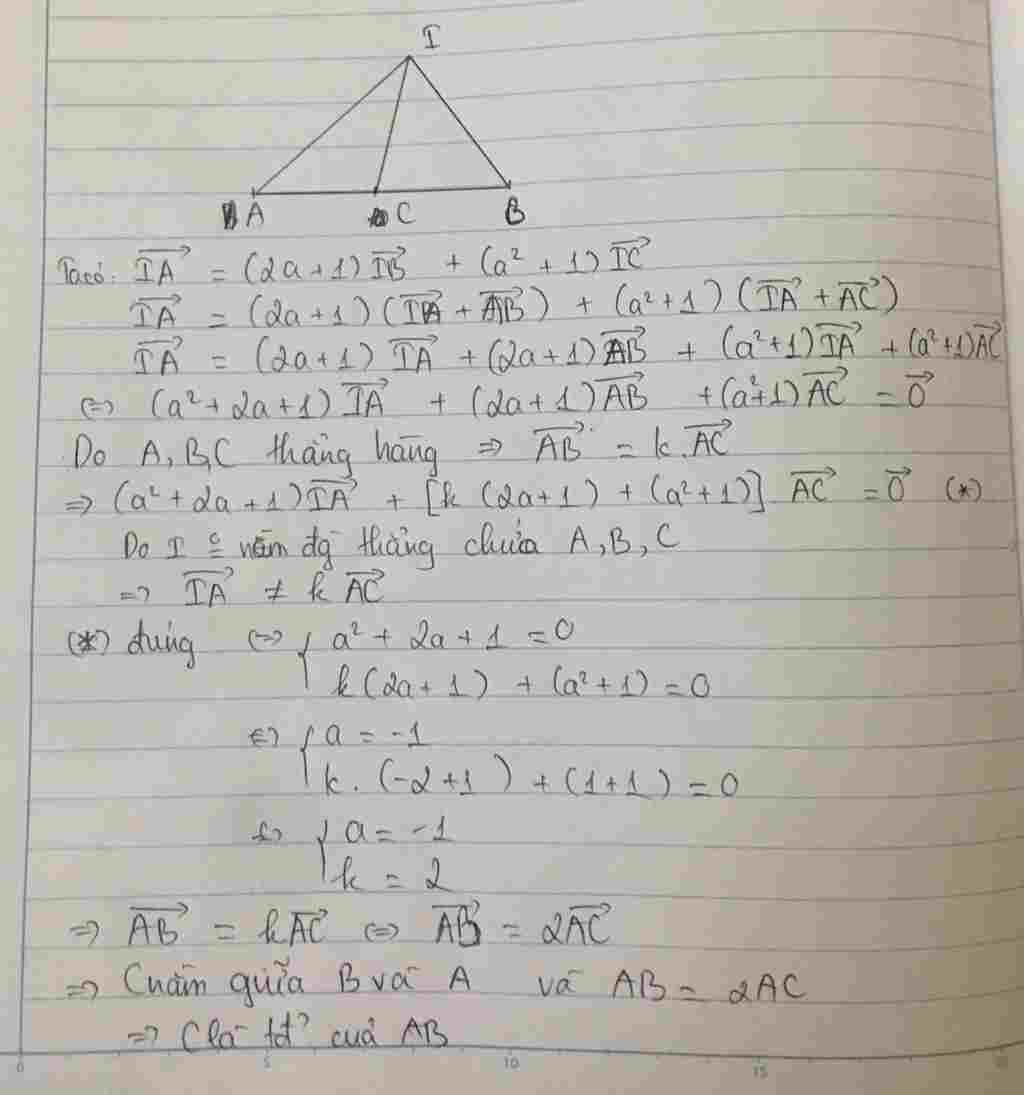 I
A C B
Ta có: $\overrightarrow{IA} = (2a+1)\overrightarrow{IB} + (a^2+1)\overrightarrow{IC}$
$\overrightarrow{IA} = (2a+1)(\overrightarrow{IA} + \overrightarrow{AB}) + (a^2+1)(\overrightarrow{IA} + \overrightarrow{AC})$
$\overrightarrow{IA} = (2a+1)\overrightarrow{IA} + (2a+1)\overrightarrow{AB} + (a^2+1)\overrightarrow{IA} + (a^2+1)\overrightarrow{AC}$
⇔ $(a^2+2a+1)\overrightarrow{IA} + (2a+1)\overrightarrow{AB} + (a^2+1)\overrightarrow{AC} = \overrightarrow{0}$
Do A, B, C thẳng hàng ⇒ $\overrightarrow{AB} = k.\overrightarrow{AC}$
⇒ $(a^2+2a+1)\overrightarrow{IA} + [k(2a+1) + (a^2+1)]\overrightarrow{AC} = \overrightarrow{0}$ (*)
Do I nằm đg thẳng chứa A, B, C
⇒ $\overrightarrow{IA} \neq k\overrightarrow{AC}$
(*) đúng ⇔ { $a^2 + 2a + 1 = 0$
$k(2a+1) + (a^2+1) = 0$
⇔ { $a = -1$
$k.(-2+1) + (1+1) = 0$
⇔ { $a = -1$
$k = 2$
⇒ $\overrightarrow{AB} = k\overrightarrow{AC}$ ⇔ $\overrightarrow{AB} = 2\overrightarrow{AC}$
⇒ C nằm giữa B và A và AB = 2AC
⇒ C là tđ² của AB
0 5 10 15